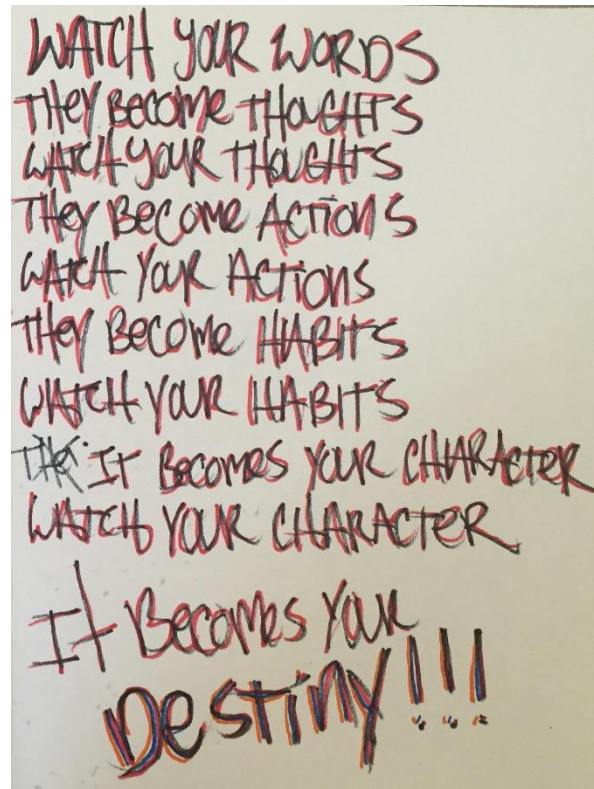 WATCH YOUR WORDS
THEY BECOME THOUGHTS
WATCH YOUR THOUGHTS
THEY BECOME ACTIONS
WATCH YOUR ACTIONS
THEY BECOME HABITS
WATCH YOUR HABITS
THE IT BECOMES YOUR CHARACTER
WATCH YOUR CHARACTER
It BECOMES YOUR
DESTINY!!!